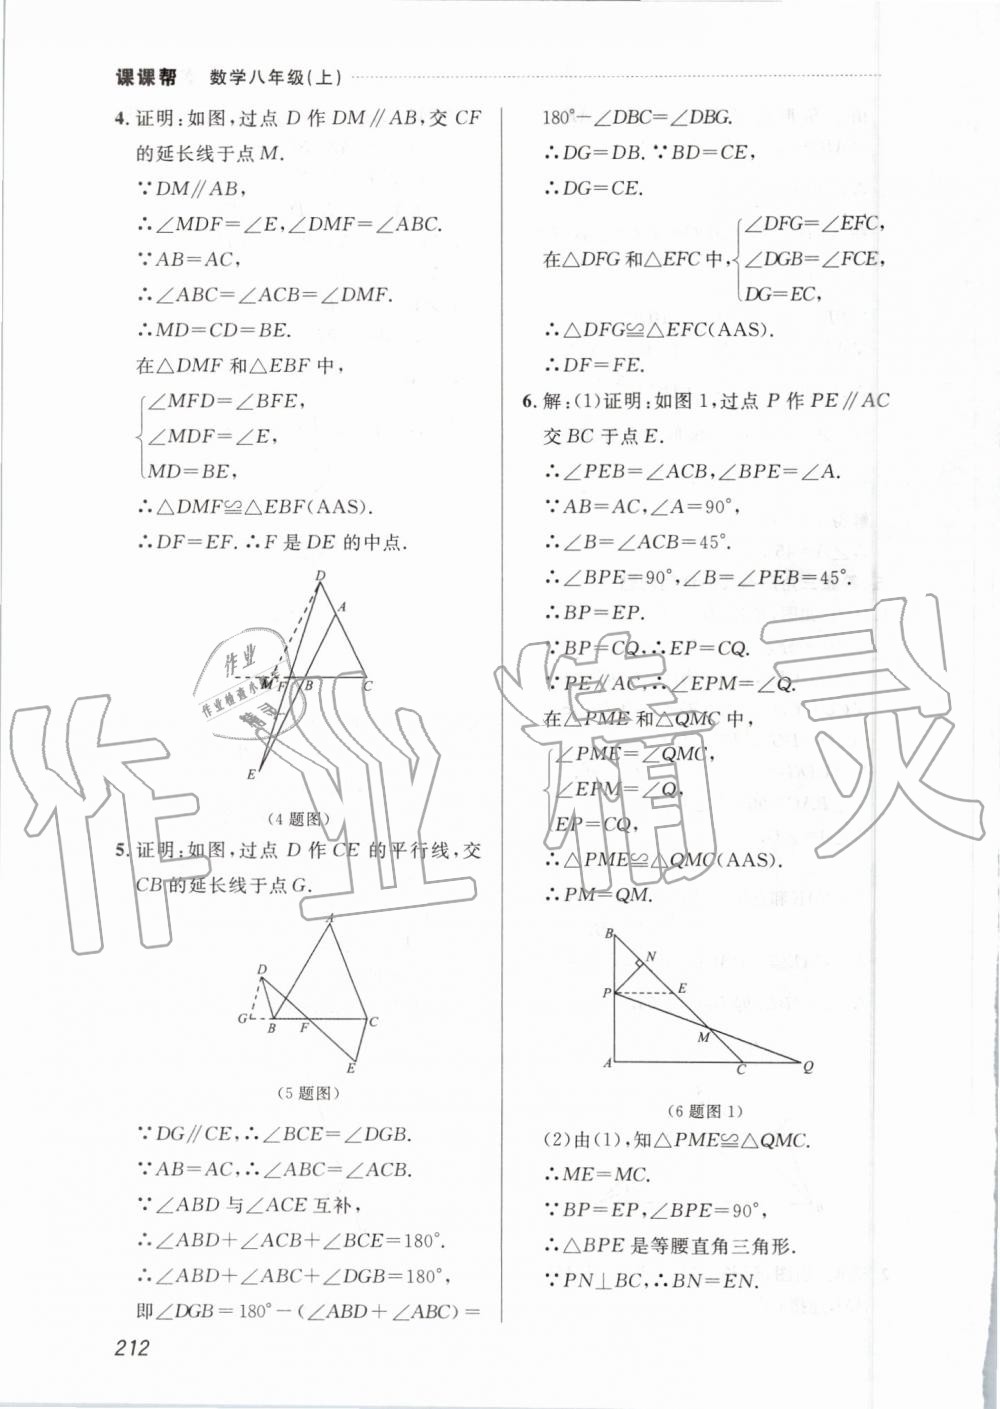 课课帮 数学八年级(上)
4. 证明:如图,过点 D 作 DM∥AB,交 CF
的延长线于点 M.
∵DM∥AB,
∴∠MDF=∠E,∠DMF=∠ABC.
∵AB=AC,
∴∠ABC=∠ACB=∠DMF.
∴MD=CD=BE.
在△DMF 和△EBF 中,
∠MFD=∠BFE,
∠MDF=∠E,
MD=BE,
∴△DMF≌△EBF(AAS).
∴DF=EF. ∴F 是 DE 的中点.
D
A
M F B C
E
(4 题图)
5. 证明:如图,过点 D 作 CE 的平行线,交
CB 的延长线于点 G.
A
D
G B F C
E
(5 题图)
∵DG∥CE,∴∠BCE=∠DGB.
∵AB=AC,∴∠ABC=∠ACB.
∵∠ABD 与∠ACE 互补,
∴∠ABD+∠ACB+∠BCE=180°.
∴∠ABD+∠ABC+∠DGB=180°,
即∠DGB=180°-(∠ABD+∠ABC)=
180°-∠DBC=∠DBG.
∴DG=DB. ∵BD=CE,
∴DG=CE.
∠DFG=∠EFC,
在△DFG 和△EFC 中, ∠DGB=∠FCE,
DG=EC,
∴△DFG≌△EFC(AAS).
∴DF=FE.
6. 解:(1)证明:如图 1,过点 P 作 PE∥AC
交 BC 于点 E.
∴∠PEB=∠ACB,∠BPE=∠A.
∵AB=AC,∠A=90°,
∴∠B=∠ACB=45°.
∴∠BPE=90°,∠B=∠PEB=45°.
∴BP=EP.
∵BP=CQ,∴EP=CQ.
∵PE∥AC,∴∠EPM=∠Q.
在△PME 和△QMC 中,
∠PME=∠QMC,
∠EPM=∠Q,
EP=CQ,
∴△PME≌△QMC(AAS).
∴PM=QM.
B
N
P E
M
A C Q
(6 题图 1)
(2)由(1),知△PME≌△QMC.
∴ME=MC.
∵BP=EP,∠BPE=90°,
∴△BPE 是等腰直角三角形.
∵PN⊥BC,∴BN=EN.
212
作业精灵
作业
作业检查小